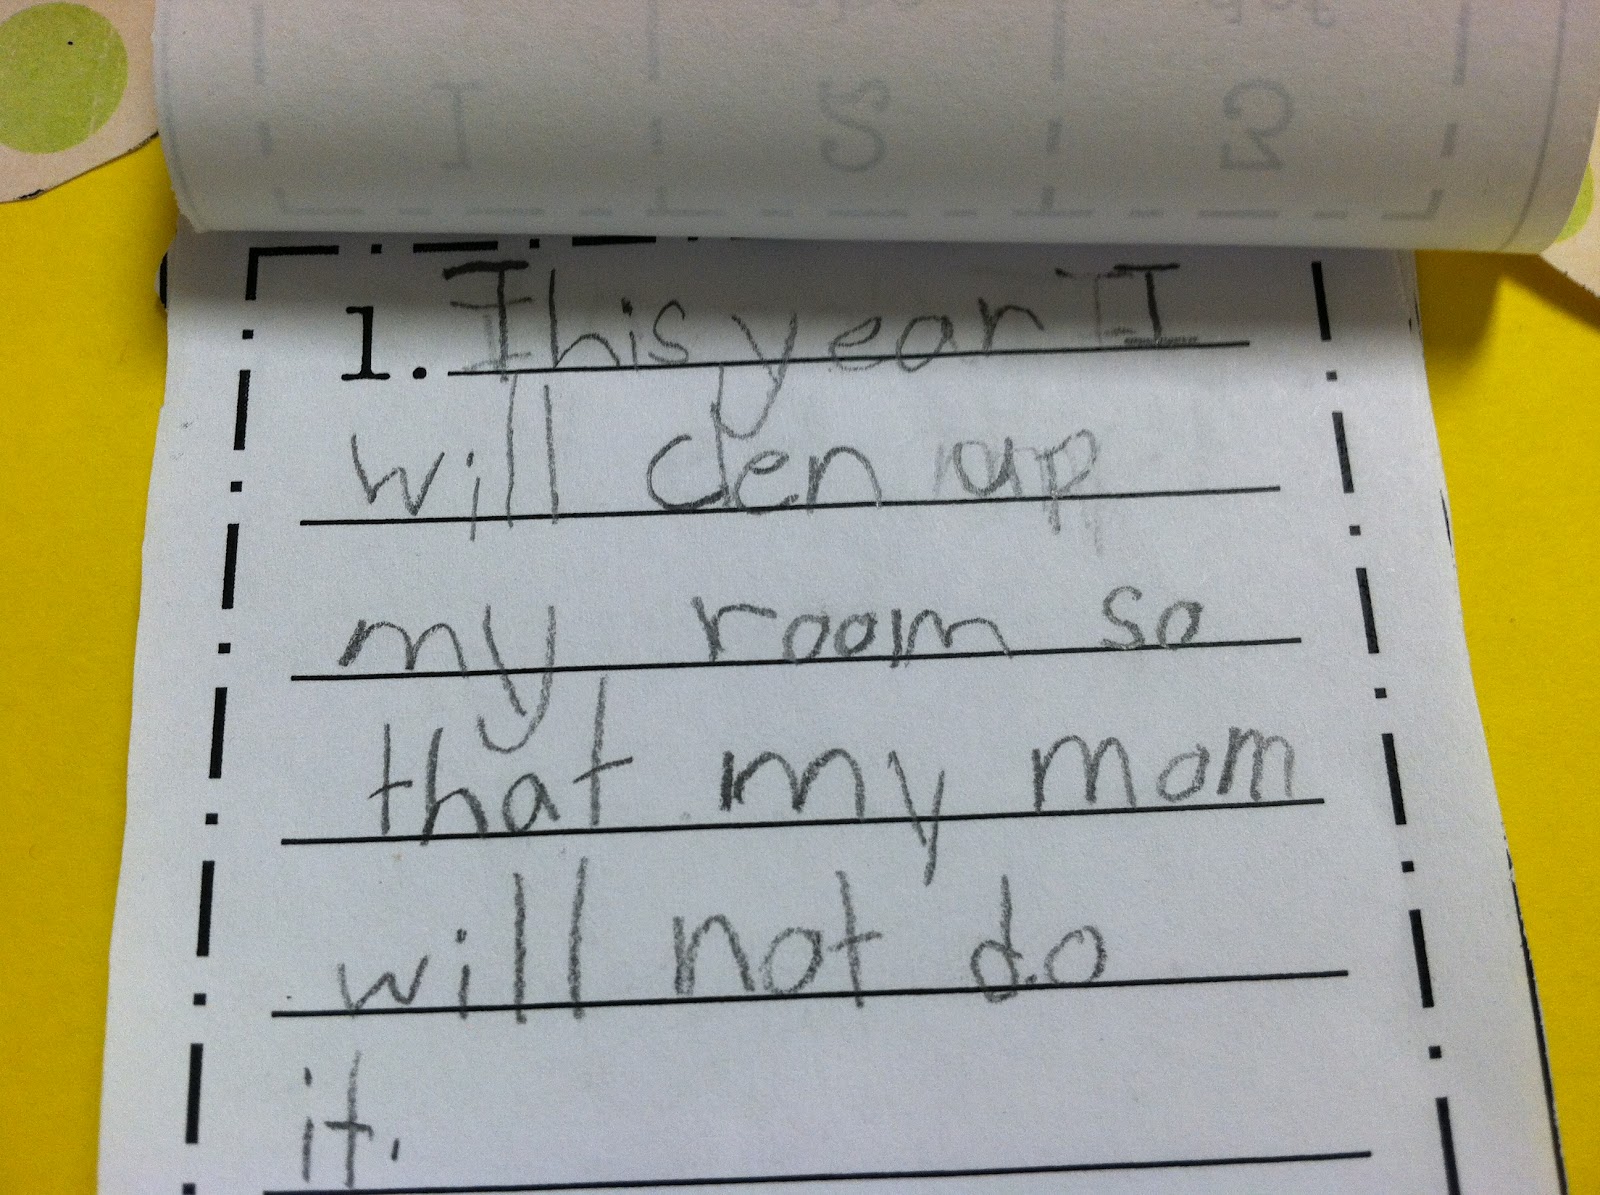 1 2 3
1. This year I
will clen up
my room so
that my mom
will not do
it.